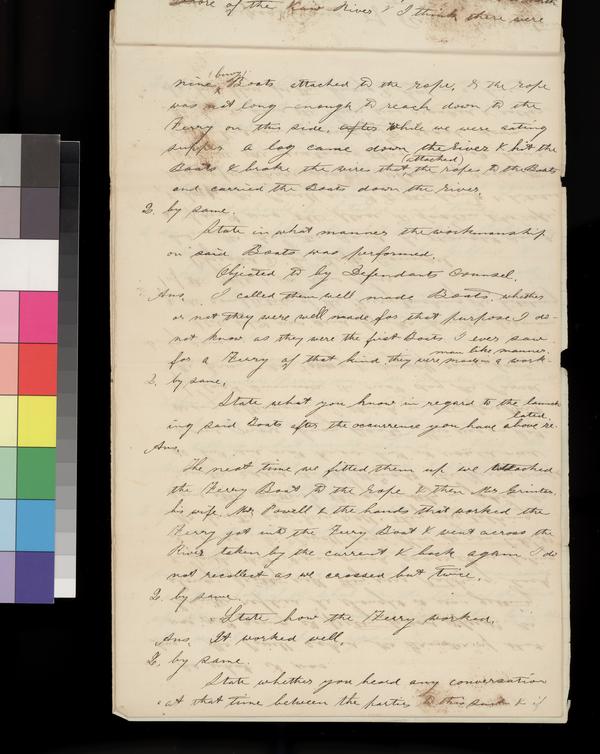 shore of the Kaw River & I think there were
nine (buoy) Boats attached to the rope, & the rope
was not long enough to reach down to the
Ferry on this side, after While we were eating
supper a log came down the River & hit the
Boats & broke the wires that (attached) the ropes to the Boats
and carried the Boats down the River.
Q. by same.
State in what manner the workmanship
on said Boats was performed.
Objected to by Defendants Counsel.
Ans. I called them well made Boats, whether
or not they were well made for that purpose I do
not know as they were the first Boats I ever saw
for a Ferry of that kind they were made in a work-
man like manner.
Q. by same.
State what you know in regard to the launch-
ing said Boats after the occurrence you have above re-
lated.
Ans.
The next time we fitted them up we attached
the Ferry Boat to the rope & then Mr Grinter,
his wife, Mr Powell & the hands that worked the
Ferry got into the Ferry Boat & went across the
River taken by the current & back again I do
not recollect as we crossed but twice.
Q. by same.
State how the Ferry worked.
Ans. It worked well.
Q. by same.
State whether you heard any conversation
at that time between the parties to this & if